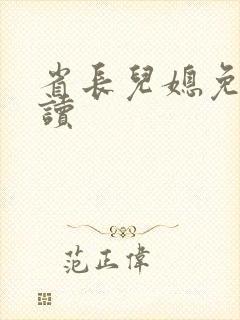 省長兒媳免
讀
范正偉